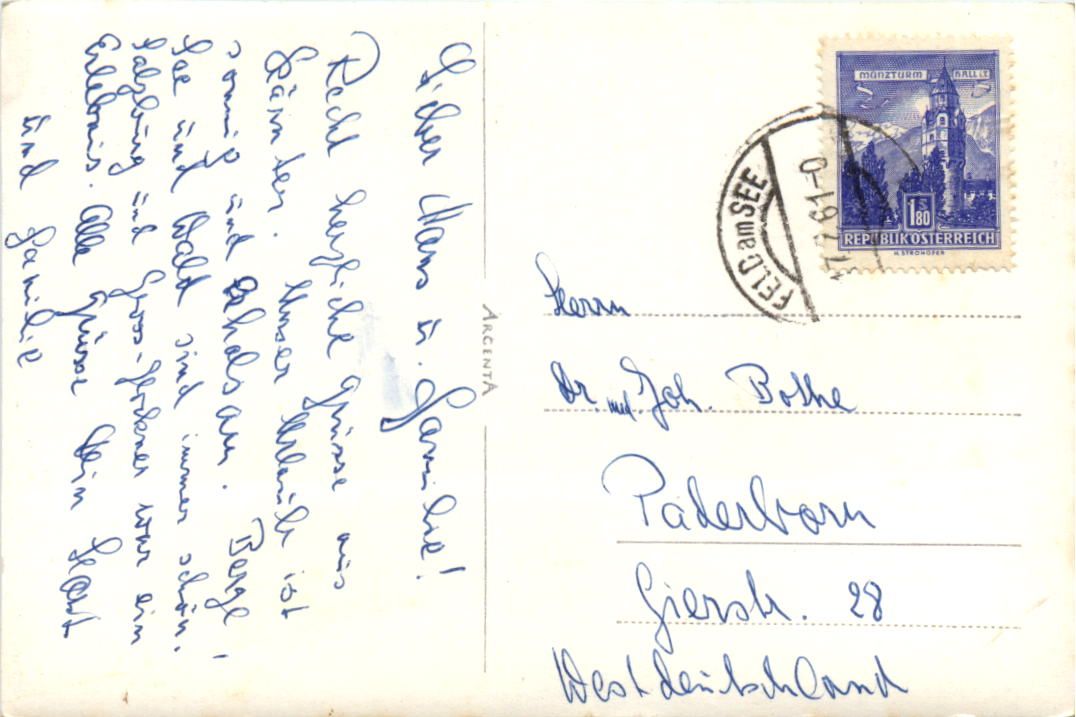 Lieber Hans u. Familie!
Recht herzliche Grüsse aus
Kärnten. Unser Urlaub ist
sonnig und erholsam. Berge,
See und Wald sind immer schön!
Salzburg und Gross-Glockner war ein
Erlebnis. Alle Grüsse Dein
und Familie
ARGENTA
MÜNZTURM HALL i.T.
1 S 80
REPUBLIK ÖSTERREICH
H. STROHOFER
FELD am SEE
17.7.61-0
Herrn
Dr. med. Joh. Bothe
Paderborn
Gierstr. 28
Westdeutschland